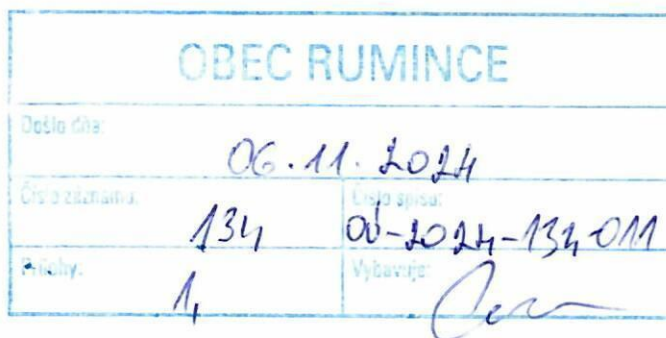 OBEC RUMINCE
Došlo dňa:
06.11.2024
Číslo záznamu: Číslo spisu:
134 OÚ-2024-134-011
Prílohy: Vybavuje:
1,